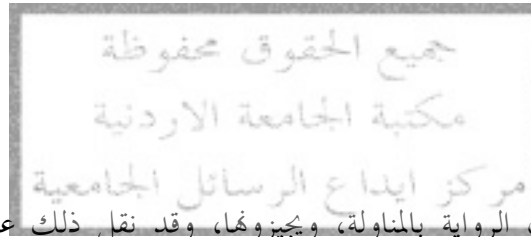 جميع الحقوق محفوظة
مكتبة الجامعة الاردنية
مركز ايداع الرسائل الجامعية
الرواية بالمناولة، ويجيزونها، وقد نقل ذلك